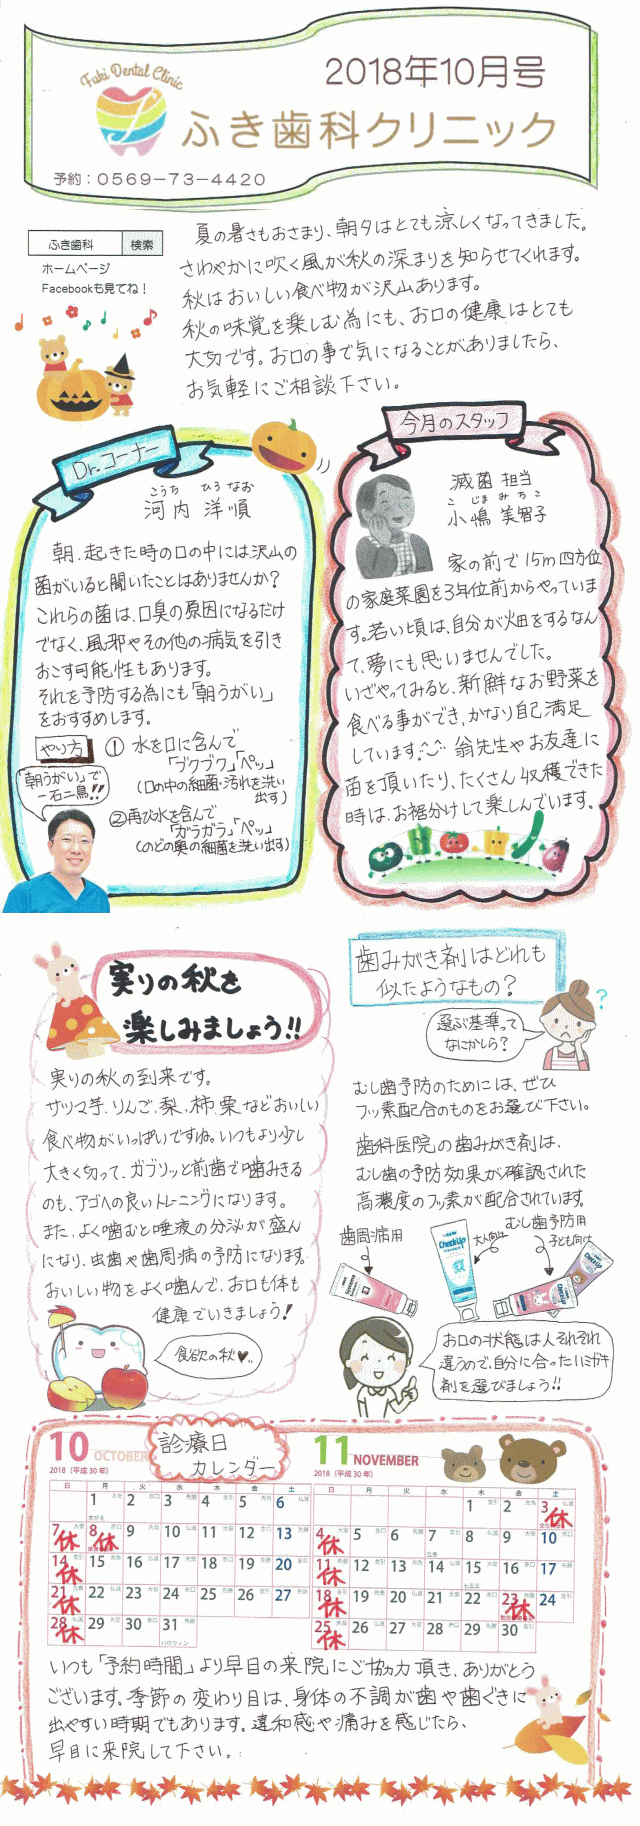 Fuki Dental Clinic
2018年10月号
ふき歯科クリニック
予約：0569-73-4420
ふき歯科 検索
ホームページ
Facebookも見てね！
夏の暑さもおさまり、朝夕はとても涼しくなってきました。
さわやかに吹く風が秋の深まりを知らせてくれます。
秋はおいしい食べ物が沢山あります。
秋の味覚を楽しむ為にも、お口の健康はとても
大切です。お口の事で気になることがありましたら、
お気軽にご相談下さい。
Dr.コーナー
こうち ひろなお
河内 洋順
朝、起きた時の口の中には沢山の
菌がいると聞いたことはありませんか？
これらの菌は、口臭の原因になるだけ
でなく、風邪やその他の病気を引き
おこす可能性もあります。
それを予防する為にも「朝うがい」
をおすすめします。
やり方 ① 水を口に含んで
「ブクブク」「ペッ」
(口の中の細菌・汚れを洗い
出す)
②再び水を含んで
「ガラガラ」「ペッ」
(のどの奥の細菌を洗い出す)
「朝うがい」で
一石二鳥!!
今月のスタッフ
滅菌 担当
こじま みちこ
小嶋 美智子
家の前で15m四方位
の家庭菜園を3年位前からやっていま
す。若い頃は、自分が畑をするなん
て、夢にも思いませんでした。
いざやってみると、新鮮なお野菜を
食べる事ができ、かなり自己満足
しています。翁先生やお友達に
苗を頂いたり、たくさん収穫できた
時は、お裾分けして楽しんでいます。
実りの秋を
楽しみましょう!!
実りの秋の到来です。
サツマ芋、りんご、梨、柿、栗などおいしい
食べ物がいっぱいですね。いつもより少し
大きく切って、ガブリッと前歯で噛みきる
のも、アゴへの良いトレーニングになります。
また、よく噛むと唾液の分泌が盛ん
になり、虫歯や歯周病の予防になります。
おいしい物をよく噛んで、お口も体も
健康でいきましょう！
食欲の秋♥..
歯みがき剤はどれも
似たようなもの？
選ぶ基準って
なにかしら？
?
むし歯予防のためには、ぜひ
フッ素配合のものをお選び下さい。
歯科医院の歯みがき剤は、
むし歯の予防効果が確認された
高濃度のフッ素が配合されています。
歯周病用
大人向け
むし歯予防用
子ども向け
CheckUp
お口の状態は人それぞれ
違うので、自分に合ったハミガキ
剤を選びましょう!!
診療日
カレンダー
10 OCTOBER
2018（平成30年）
日 月 火 水 木 金 土
1 2 3 4 5 6
7 8 9 10 11 12 13
休 休
14 15 16 17 18 19 20
休
21 22 23 24 25 26 27
休
28 29 30 31
休
ハロウィン
11 NOVEMBER
2018（平成30年）
日 月 火 水 木 金 土
1 2 3
休
4 5 6 7 8 9 10
休
11 12 13 14 15 16 17
休
18 19 20 21 22 23 24
休 休
25 26 27 28 29 30
休
いつも「予約時間」より早目の来院にご協力頂き、ありがとう
ございます。季節の変わり目は、身体の不調が歯や歯ぐきに
出やすい時期でもあります。違和感や痛みを感じたら、
早目に来院して下さい。